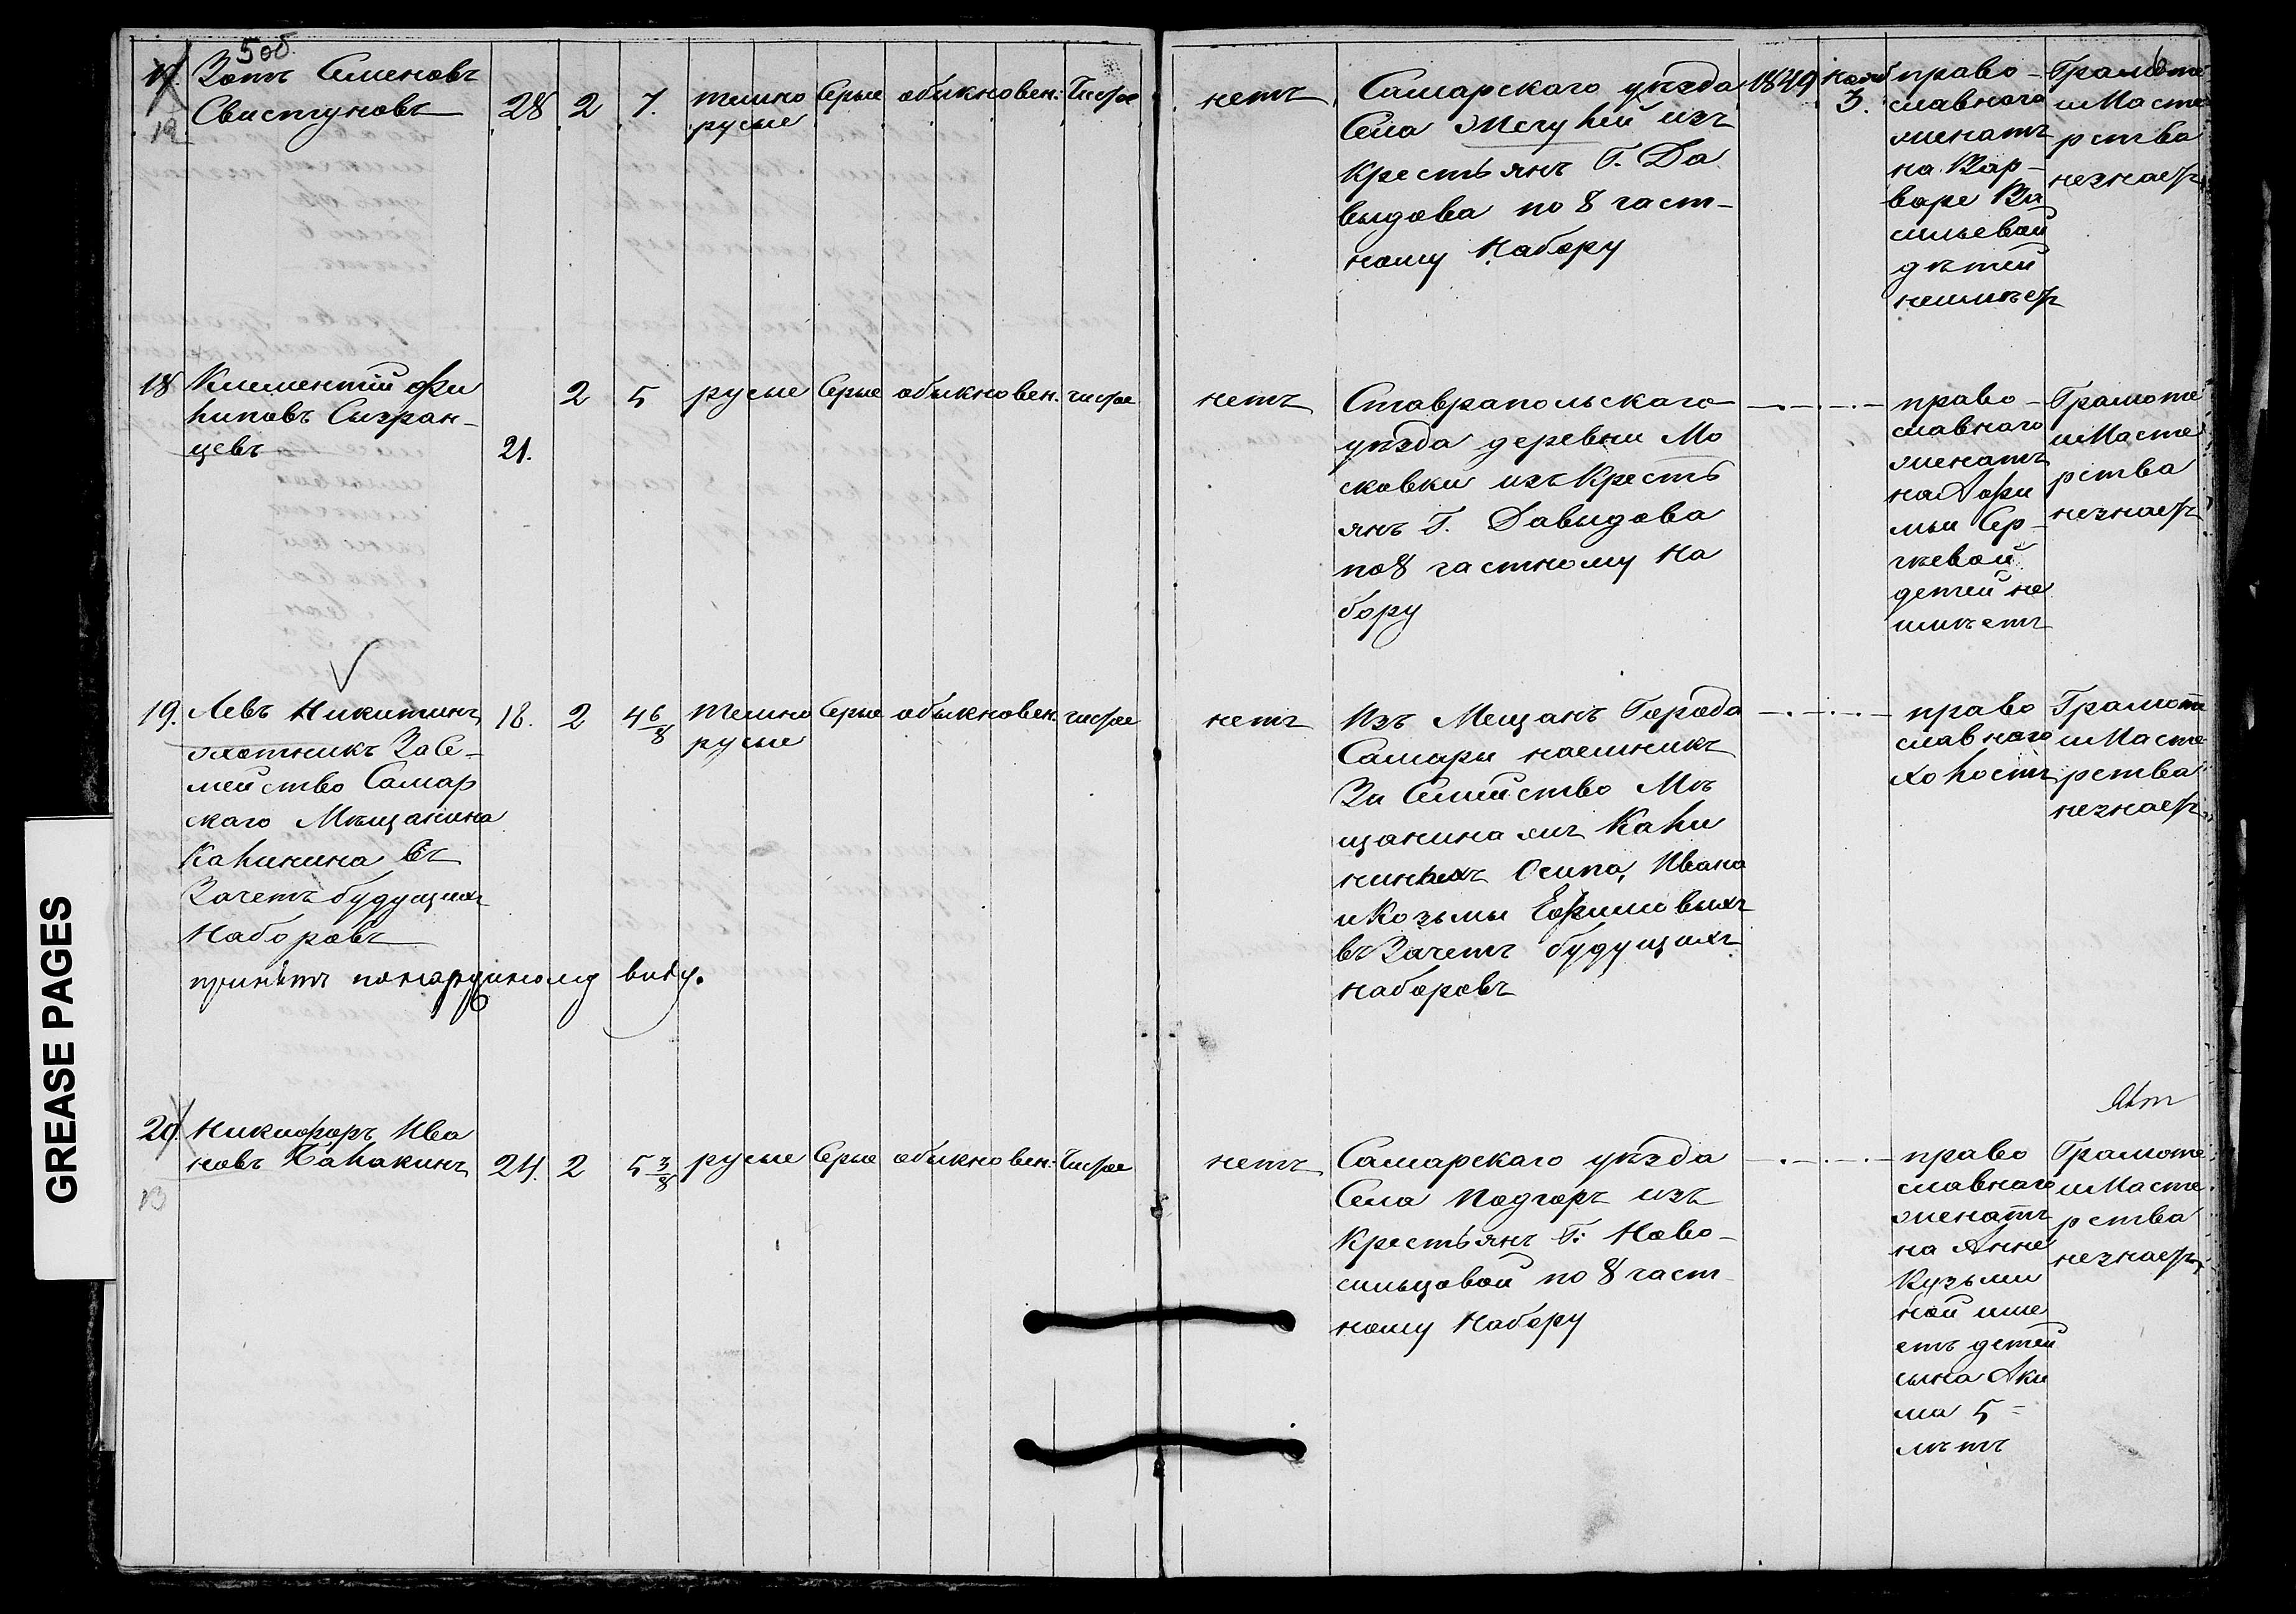 50об.
17. Зотъ Семеновъ
Свистуновъ 28 2 7. темно русые Серые обыкновен: Чистое
12
нетъ Самарскаго уѣзда 1849 Нояб 3.
Села Жегулей изъ
Крестьянъ Г. Да
выдова по 8 част-
ному Набору
право-
славнаго
женатъ
на Вар-
варе Ва
сильевой
дѣтей
неимѣетъ
Грамоте
иМасте
рства
незнаетъ
18 Климентій Фи
липовъ Сызран-
цевъ 21. 2 5 русые Серые обыкновен. чистое
нетъ Ставрапольскаго
уѣзда деревни Мо
сковки изъ Кресть
янъ Г. Давыдова
по 8 частному На
бору
право-
славнаго
женатъ
на Афи
мьи Сер-
гѣевой
детей не
имѣетъ
Грамоте
иМасте
рства
незнаетъ
19. Левъ Никитинъ 18. 2 4 6/8 темно русые Серые обыкновен. чистое
охотникъ За Се-
мейство Самар
скаго Мѣщанина
Калинина въ
Зачетъ будущихъ
Наборовъ
принятъ по наружному виду.
нетъ Изъ Мещанъ Города
Самары наемникъ
За Семейство Мѣ
щанина Кали
ниныхъ Осипа, Ивана
и Козьмы Ефимовыхъ
въ Зачетъ будущихъ
наборовъ
право
славнаго
холостъ
Грамоте
иМасте
рства
незнаетъ
20. Никифоръ Ива
новъ Балакинъ 24. 2 5 3/8 русые Серые обыкновен: Чистое
13
нетъ Самарскаго уѣзда
Села Подгоръ изъ
Крестьянъ Г: Ново-
сильцовой по 8 част
ному Набору
право
славнаго
женатъ
на Анне
Кузьми
ной име
етъ детей
сына Аки
ма 5-
лѣтъ
Грамоте
иМасте
рства
незнаетъ
GREASE PAGES